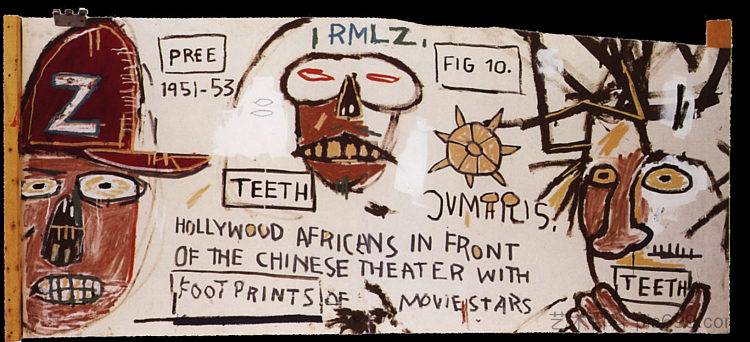 Z
PREE
1951-53
IRMLZ.
FIG 10.
TEETH
JUMAPLIS.
HOLLYWOOD AFRICANS IN FRONT
OF THE CHINESE THEATER WITH
FOOTPRINTS OF MOVIESTARS
TEETH